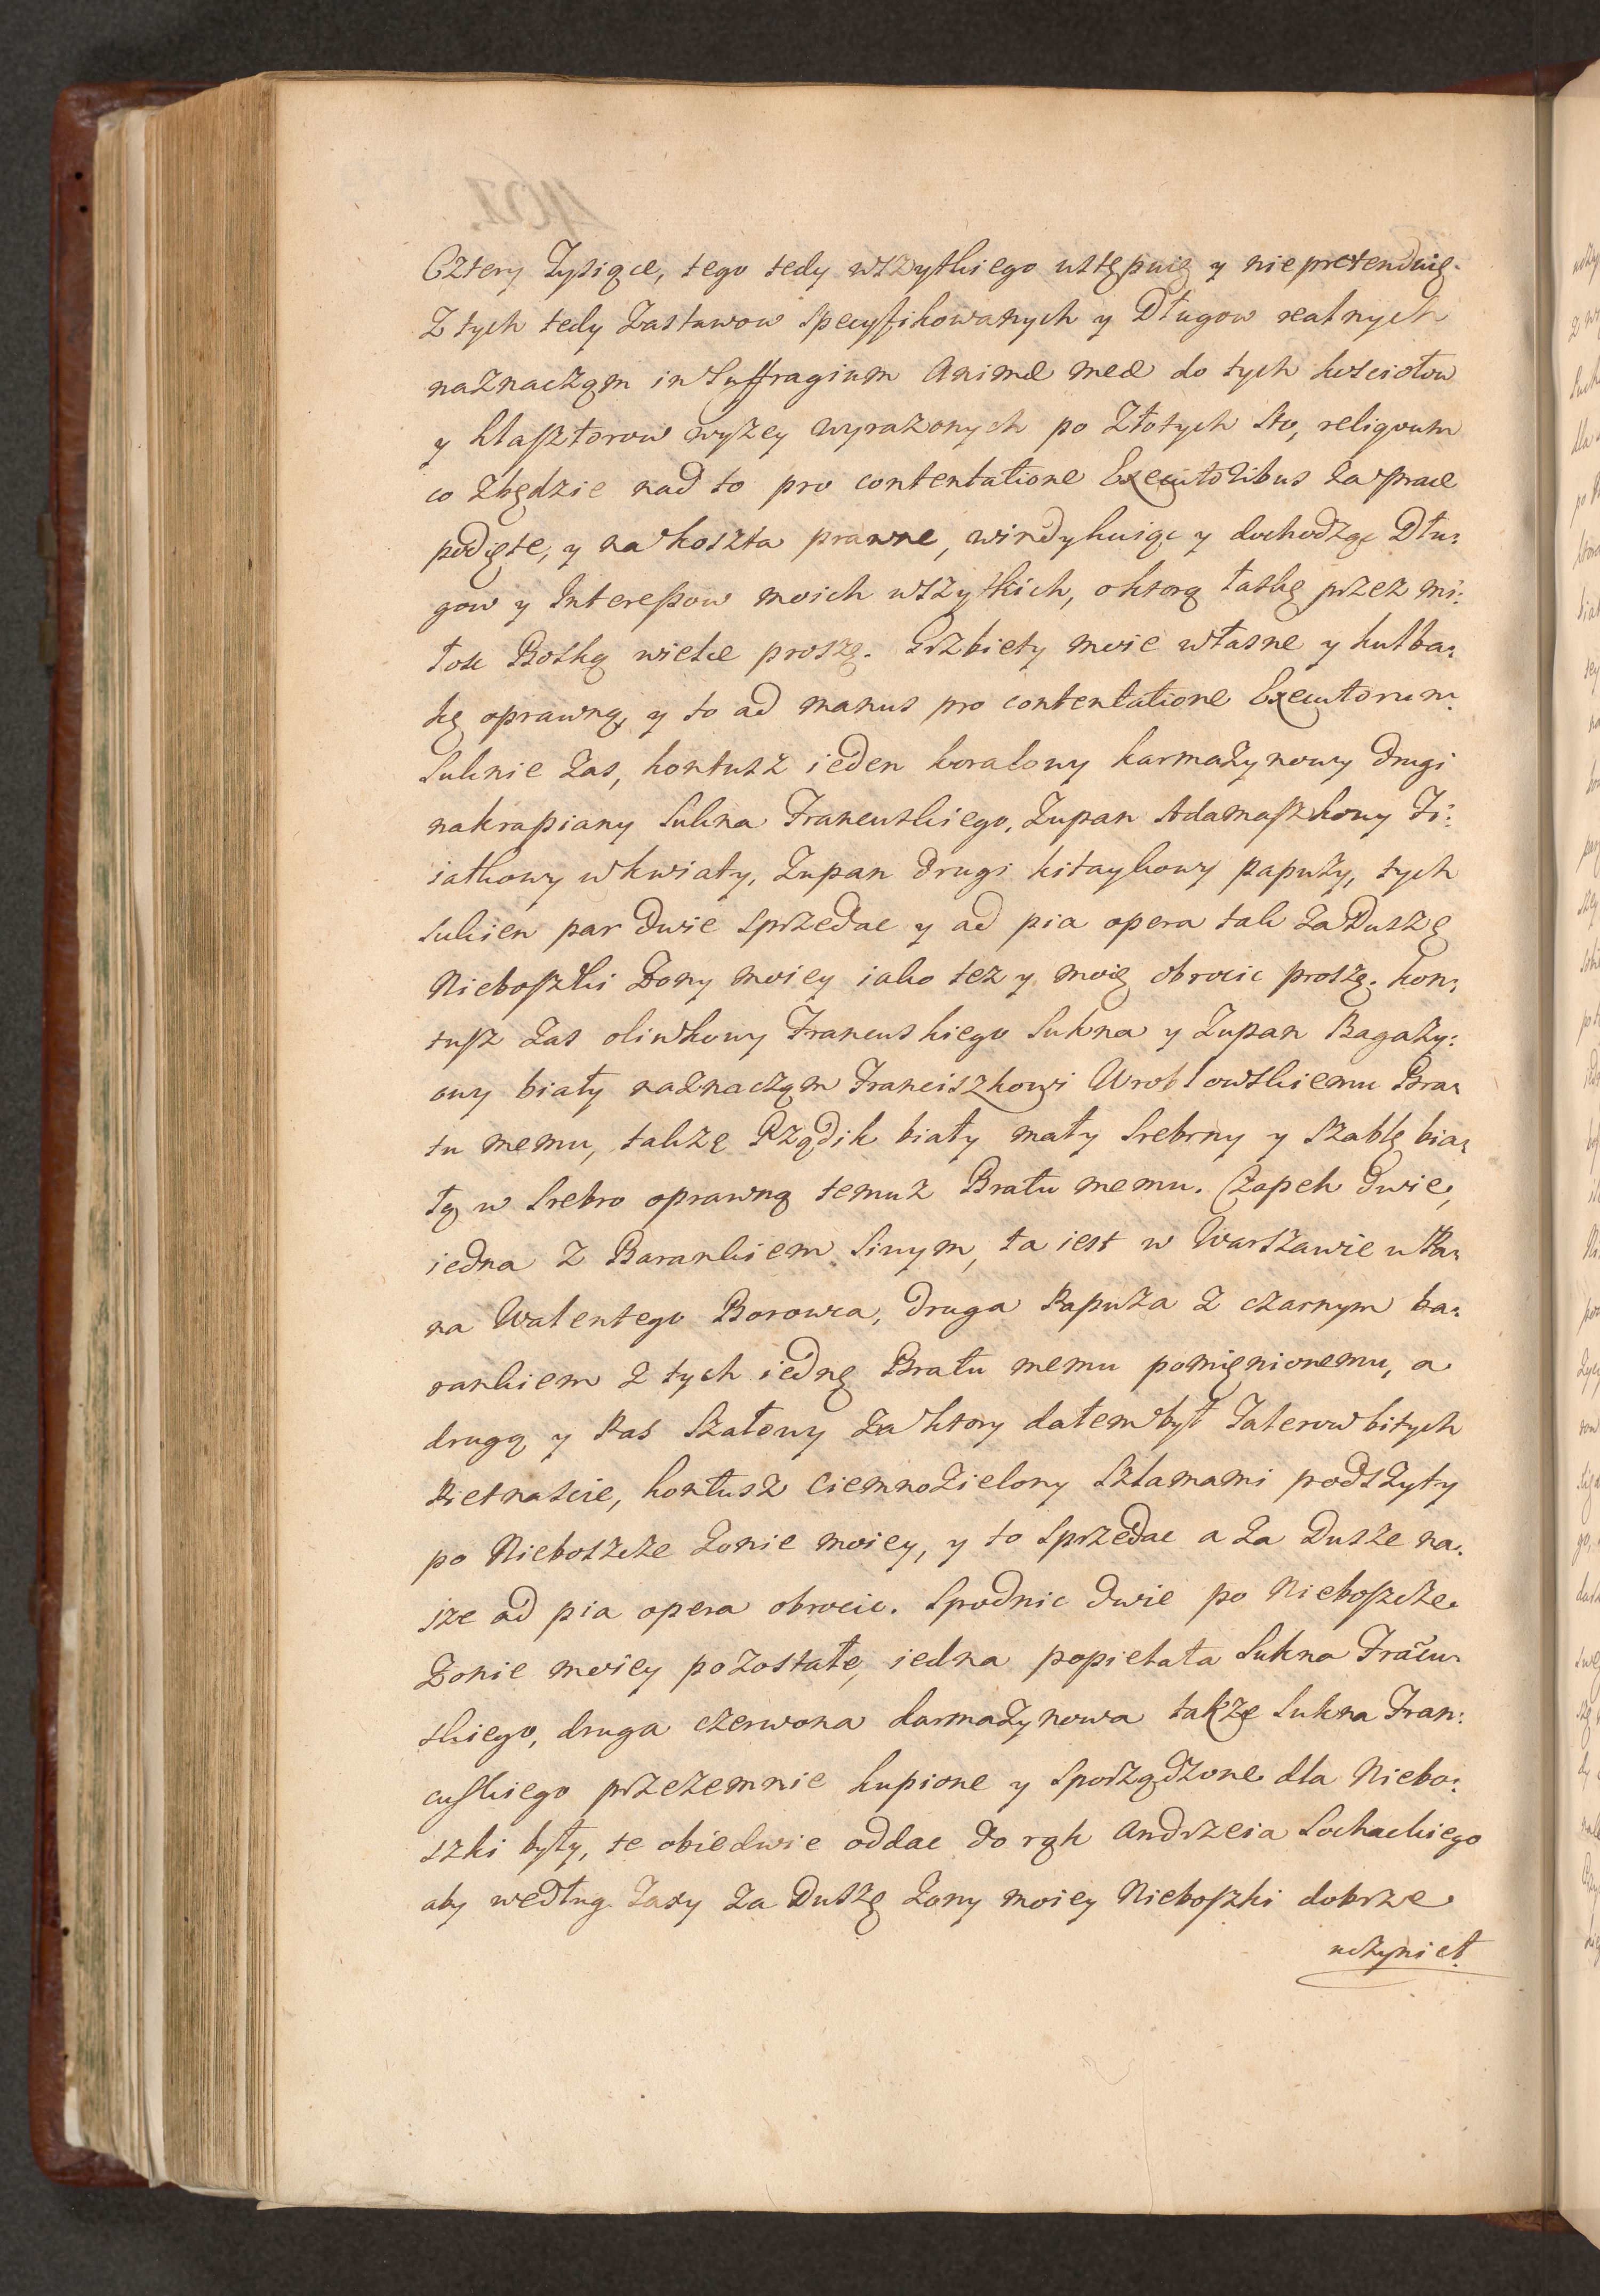 Cztery Tysiące, tego tedy wszytkiego ustępuię y niepretenduię.
Z tych tedy Zastawow specyfikowanych y Długow realnych
naznacząm in Suffragium Animæ meæ do tych kościołow
y klasztorow wyzey wyrazonych po Złotych sto, reliquum
co zbędzie nad to pro contentatione Executoribus za prace
podięte, y na koszta prawne, windykuiąc y dochodząc Dłu:
gow y Interessow moich wszytkich, o ktorą łaskę przez mi:
łość Boską wielce proszę. Grzbiety moie własne y kulba:
kę oprawną, y to ad manus pro contentatione Executorum.
Suknie zas, kontusz ieden koralowy karmazynowy drugi
nakrapiany Sukna Francuskiego, Zupan Adamaszkowy Fi:
iałkowy w kwiaty, Zupan drugi kitaykowy papuzy, tych
sukien par dwie sprzedac y ad pia opera tak za Duszę
Nieboszki Zony moiey iako tez y moię obrocic proszę. Kon:
tusz zas oliwkowy Francuskiego Sukna y Zupan Bagazy:
owy biały naznacząm Franciszkowi Wroblowskiemu Bra:
tu memu, takze Rządzik biały mały srebrny y szablę bia:
łą w srebro oprawną temuz Bratu memu. Czapek dwie,
iedna z Barankiem Siwym, ta iest w Warszawie u Pa:
na Walentego Borowca, druga Papuza z czarnym ba:
rankiem z tych iednę Bratu memu pomięnionemu, a
drugą y Pas Szałowy za ktory dałem był Talerow bitych
Pietnascie, kontusz ciemnozielony szlamami podszyty
po Nieboszcze Zonie moiey, y to sprzedac a za Dusze na:
sze ad pia opera obrocic. Spodnic dwie po Nieboszcze
Zonie moiey pozostałe, iedna popielata Sukna Frãcu:
skiego, druga czerwona karmazynowa takze Sukna Fran:
cuskiego przezemnie kupione y sporządzone dla Niebo:
szki były, te obiedwie oddac do rąk Andrzeia Sochackiego
aby według Taxy za Duszę Zony moiey Nieboszki dobrze
uczynieł.